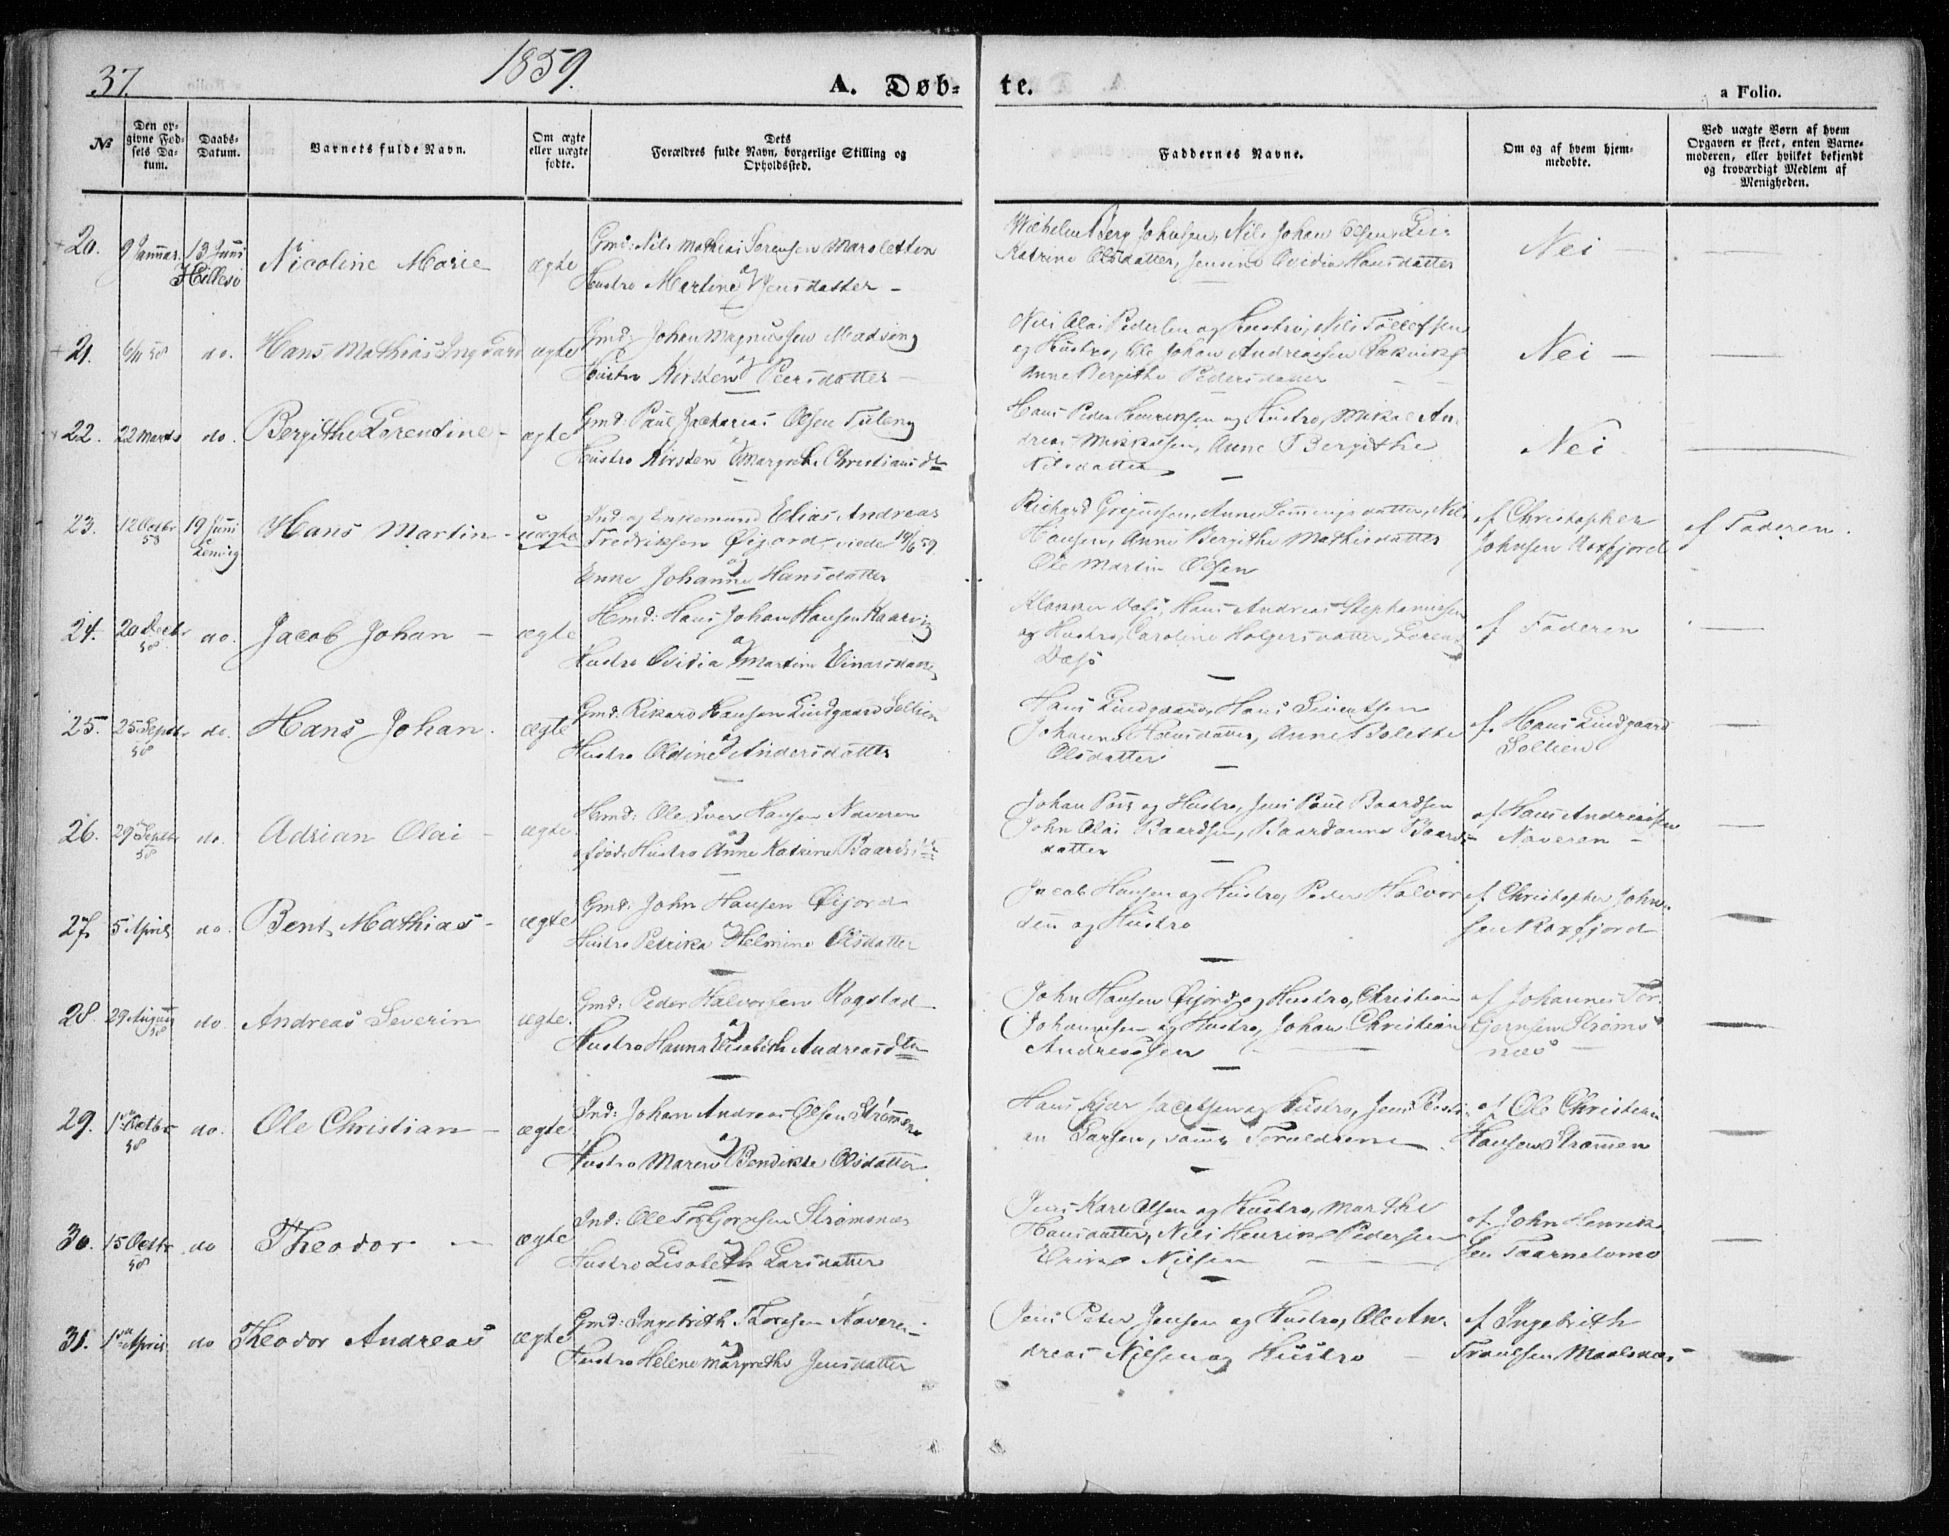 37.
1859.
A. Døb-
te.
a Folio.
№
Den op-
givne Fød-
sels Da-
tum.
Daabs-
Datum.
Barnets fulde Navn.
Om ægte
eller uægte
fødte.
Dets
Forældres fulde Navn, borgerlige Stilling og
Opholdssted.
Faddernes Navne.
Om og af hvem hjem-
medøbte.
Ved uægte Børn af hvem
Opgaven er skeet, enten Barne-
moderen, eller hvilket bekjendt
og troværdigt Medlem af
Menigheden.
20.
9 Januar
13 Juni
Hillesø
Nicoline Marie
ægte
Gmd: Nils Mathias Sørensen
og
Hustro Martine Jensdatter
Wilhelm Berg Johnsen, Nils Johan Olsen,
Katrine Olsdatter, Jensine Ovidia Hansdatter
Nei
21.
6/11 58
do.
Hans Mathias
ægte
Gmd: Johan Magnussen
og
Hustro Kirsten Peersdatter
Nils Olai Pedersen og Hustro, Nils
og Hustro, Ole Johan Andreassen
Anne Bergithe Pedersdatter
Nei
22.
22 Marts
do.
Bergithe Lorentine
ægte
Gmd: Paul Zacharias Olsen
og
Hustro Kirsten Margrethe
Hans Peder Henriksen og Hustro, Mikal An-
dreas Mikkalsen, Anne Bergithe
Nilsdatter
Nei
23.
12 Octbr
58
19 Juni
Lenvig
Hans Martin
uægte
Ind. og Enkemand Elias Andreas
Fredriksen Øijord, viede 19/6 59
og
Enke Johanne Hansdatter
Richard
Hansen, Anne Bergithe Mathisdatter
Ole Martin Olsen
af Christopher
Johnsen Roxfjord
af Faderen.
24.
20 Decbr
58
do.
Jacob Johan
ægte
Hmd: Hans Johan Hansen Kaarvig
og
Hustro Ovidia Martine
Klokker Hans Andreas Stephanussen
og Hustro, Caroline Holgersdatter, Lorents
af Faderen
25.
25 Septbr
58
do.
Hans Johan.
ægte
Gmd: Rikard Hansen Lindgaard
og
Hustro Oldine Andersdatter
Hans Lindgaard, Hans Sivertsen
Johanna Hansdatter, Anne Bolette
Olsdatter
af Hans Lindgaard
26.
29 Septbr
58
do.
Adrian Olai
ægte
Hmd: Ole Iver Hansen Naveren
og
afdøde Hustro Anne Katrine
Johan og Hustro, Jens Paul Baardsen
John Olai Baardsen, Baardanna Baards-
datter
af Hans Andreassen
Naveren
27.
5 April
do.
Bent Mathias
ægte
Gmd: John Hansen Øijord
og
Hustro Petrika Helmine Olsdatter
Jacob Hansen og Hustro, Peder Halvor-
sen og Hustro
af Christopher John-
sen Roxfjord
28.
29 August
58
do.
Andreas Severin
ægte.
Gmd: Peder Halvorsen Rogstad
og
Hustro Hanna Elisabeth
John Hansen Øijord og Hustro, Christian
Johannesen og Hustro, Johan Christian
Andreassen
af Johannes Tor-
bjørnsen Strøms-
næs
29.
1ste Octbr
58
do.
Ole Christian
ægte
Ind: Johan Andreas Olsen Strømmen
og
Hustro Maren Bendikte Olsdatter
Hans Kjær Jacobsen og Hustro, Jens
Larsen, samt Forældrene
af Ole Christian
Hansen Strømmen
30.
15 Octbr
58
do
Theodor
ægte
Ind: Ole Torbjørnsen Strømsnæs
og
Hustro Lisabeth Larsdatter
Jens Karl Olsen og Hustro, Marthe
Hansdatter, Nils Henrik Pedersen
Erik Nilsen
af John Henrik-
sen
31.
1ste April
do
Theodor Andreas
ægte
Gmd: Ingebrith
og
Hustro Helene Margrethe Jensdatter
Jens Peter Jensen og Hustro, Ole An-
dreas Nilsen og Hustro
af Ingebrith